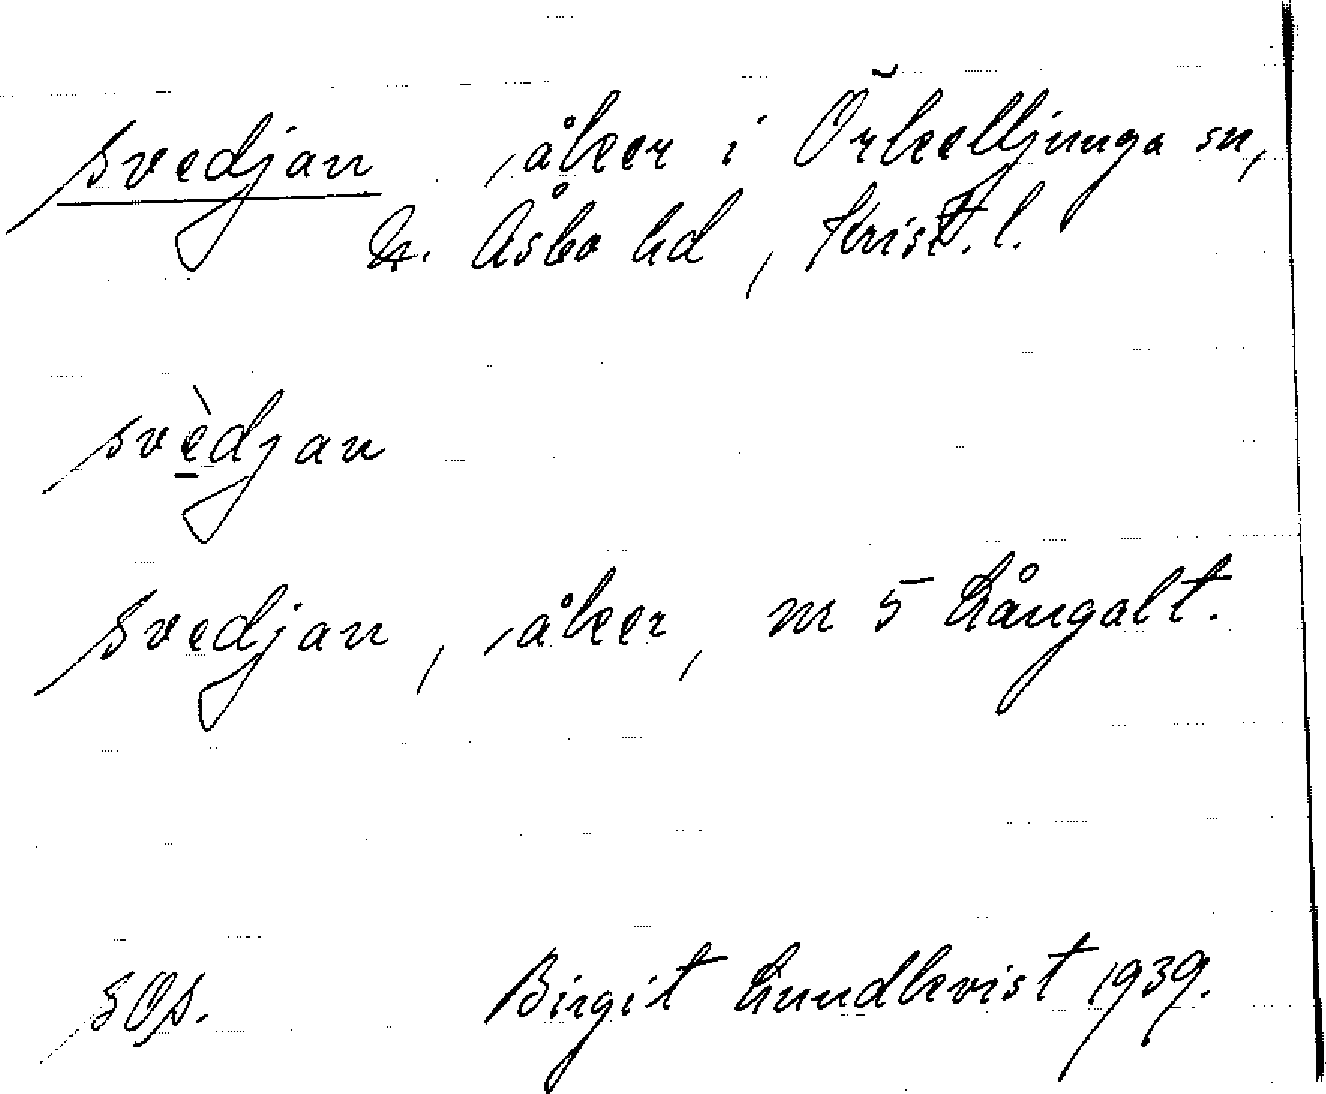 svedjan, åker i Örkelljunga sn,
N. Åsbo hd, Krist. l.
svèdjan
svedjan, åker, nr 5 Långalt.
SOS. Birgit Lundkvist 1939.